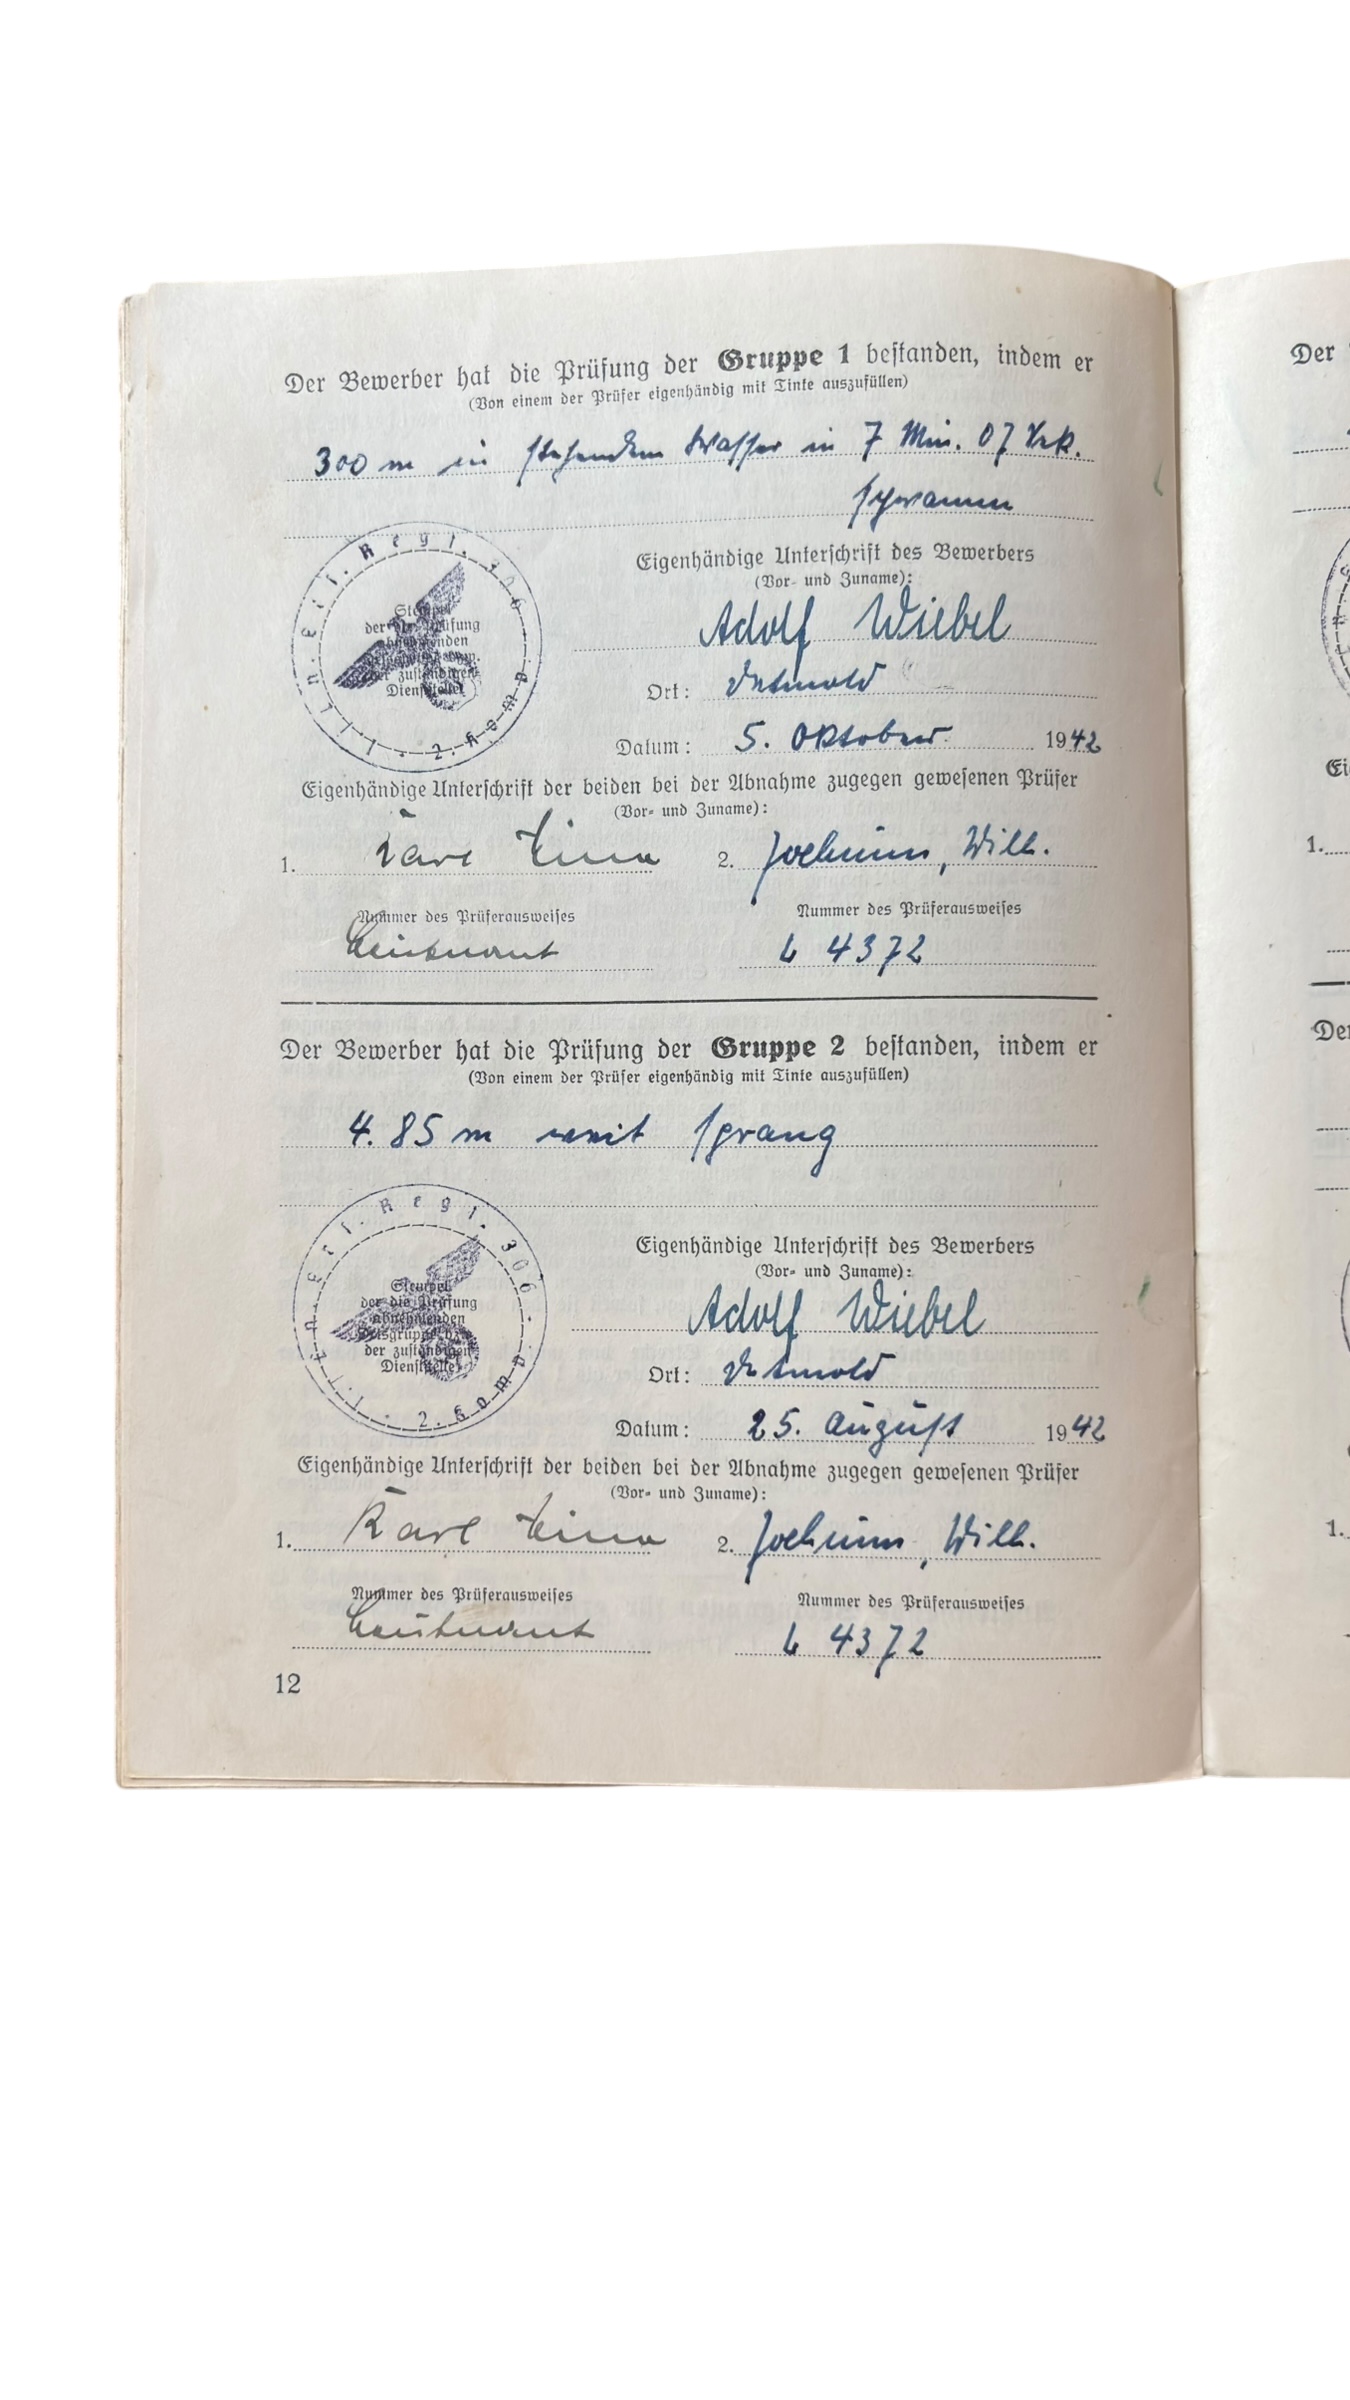 Der Bewerber hat die Prüfung der Gruppe 1 bestanden, indem er
(Von einem der Prüfer eigenhändig mit Tinte auszufüllen)
300 m in stehendem Wasser in 7 Min. 07 Sek.
schwamm
Inf. Ers. Regt. 306
Stempel
der die Prüfung
abnehmenden
der zuständigen
Dienststelle
Eigenhändige Unterschrift des Bewerbers
(Vor- und Zuname):
Adolf Wiebel
Ort: Detmold
Datum: 5. Oktober 1942
Eigenhändige Unterschrift der beiden bei der Abnahme zugegen gewesenen Prüfer
(Vor- und Zuname):
1. Karl 2. Jochims, Wilh.
Nummer des Prüferausweises Nummer des Prüferausweises
Leutnant L 4372
Der Bewerber hat die Prüfung der Gruppe 2 bestanden, indem er
(Von einem der Prüfer eigenhändig mit Tinte auszufüllen)
4.85 m weit sprang
Regt. 306
Stempel
der die Prüfung
abnehmenden
Ortsgruppe bzw.
der zuständigen
Dienststelle
Eigenhändige Unterschrift des Bewerbers
(Vor- und Zuname):
Adolf Wiebel
Ort: Detmold
Datum: 25. August 1942
Eigenhändige Unterschrift der beiden bei der Abnahme zugegen gewesenen Prüfer
(Vor- und Zuname):
1. Karl 2. Jochims, Wilh.
Nummer des Prüferausweises Nummer des Prüferausweises
Leutnant L 4372
12
Der
1.
Der
1.